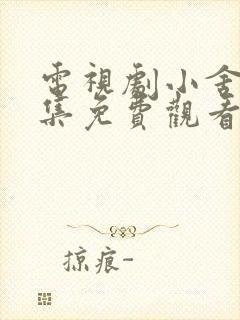 電視劇小舍
集免費觀看
掠痕-